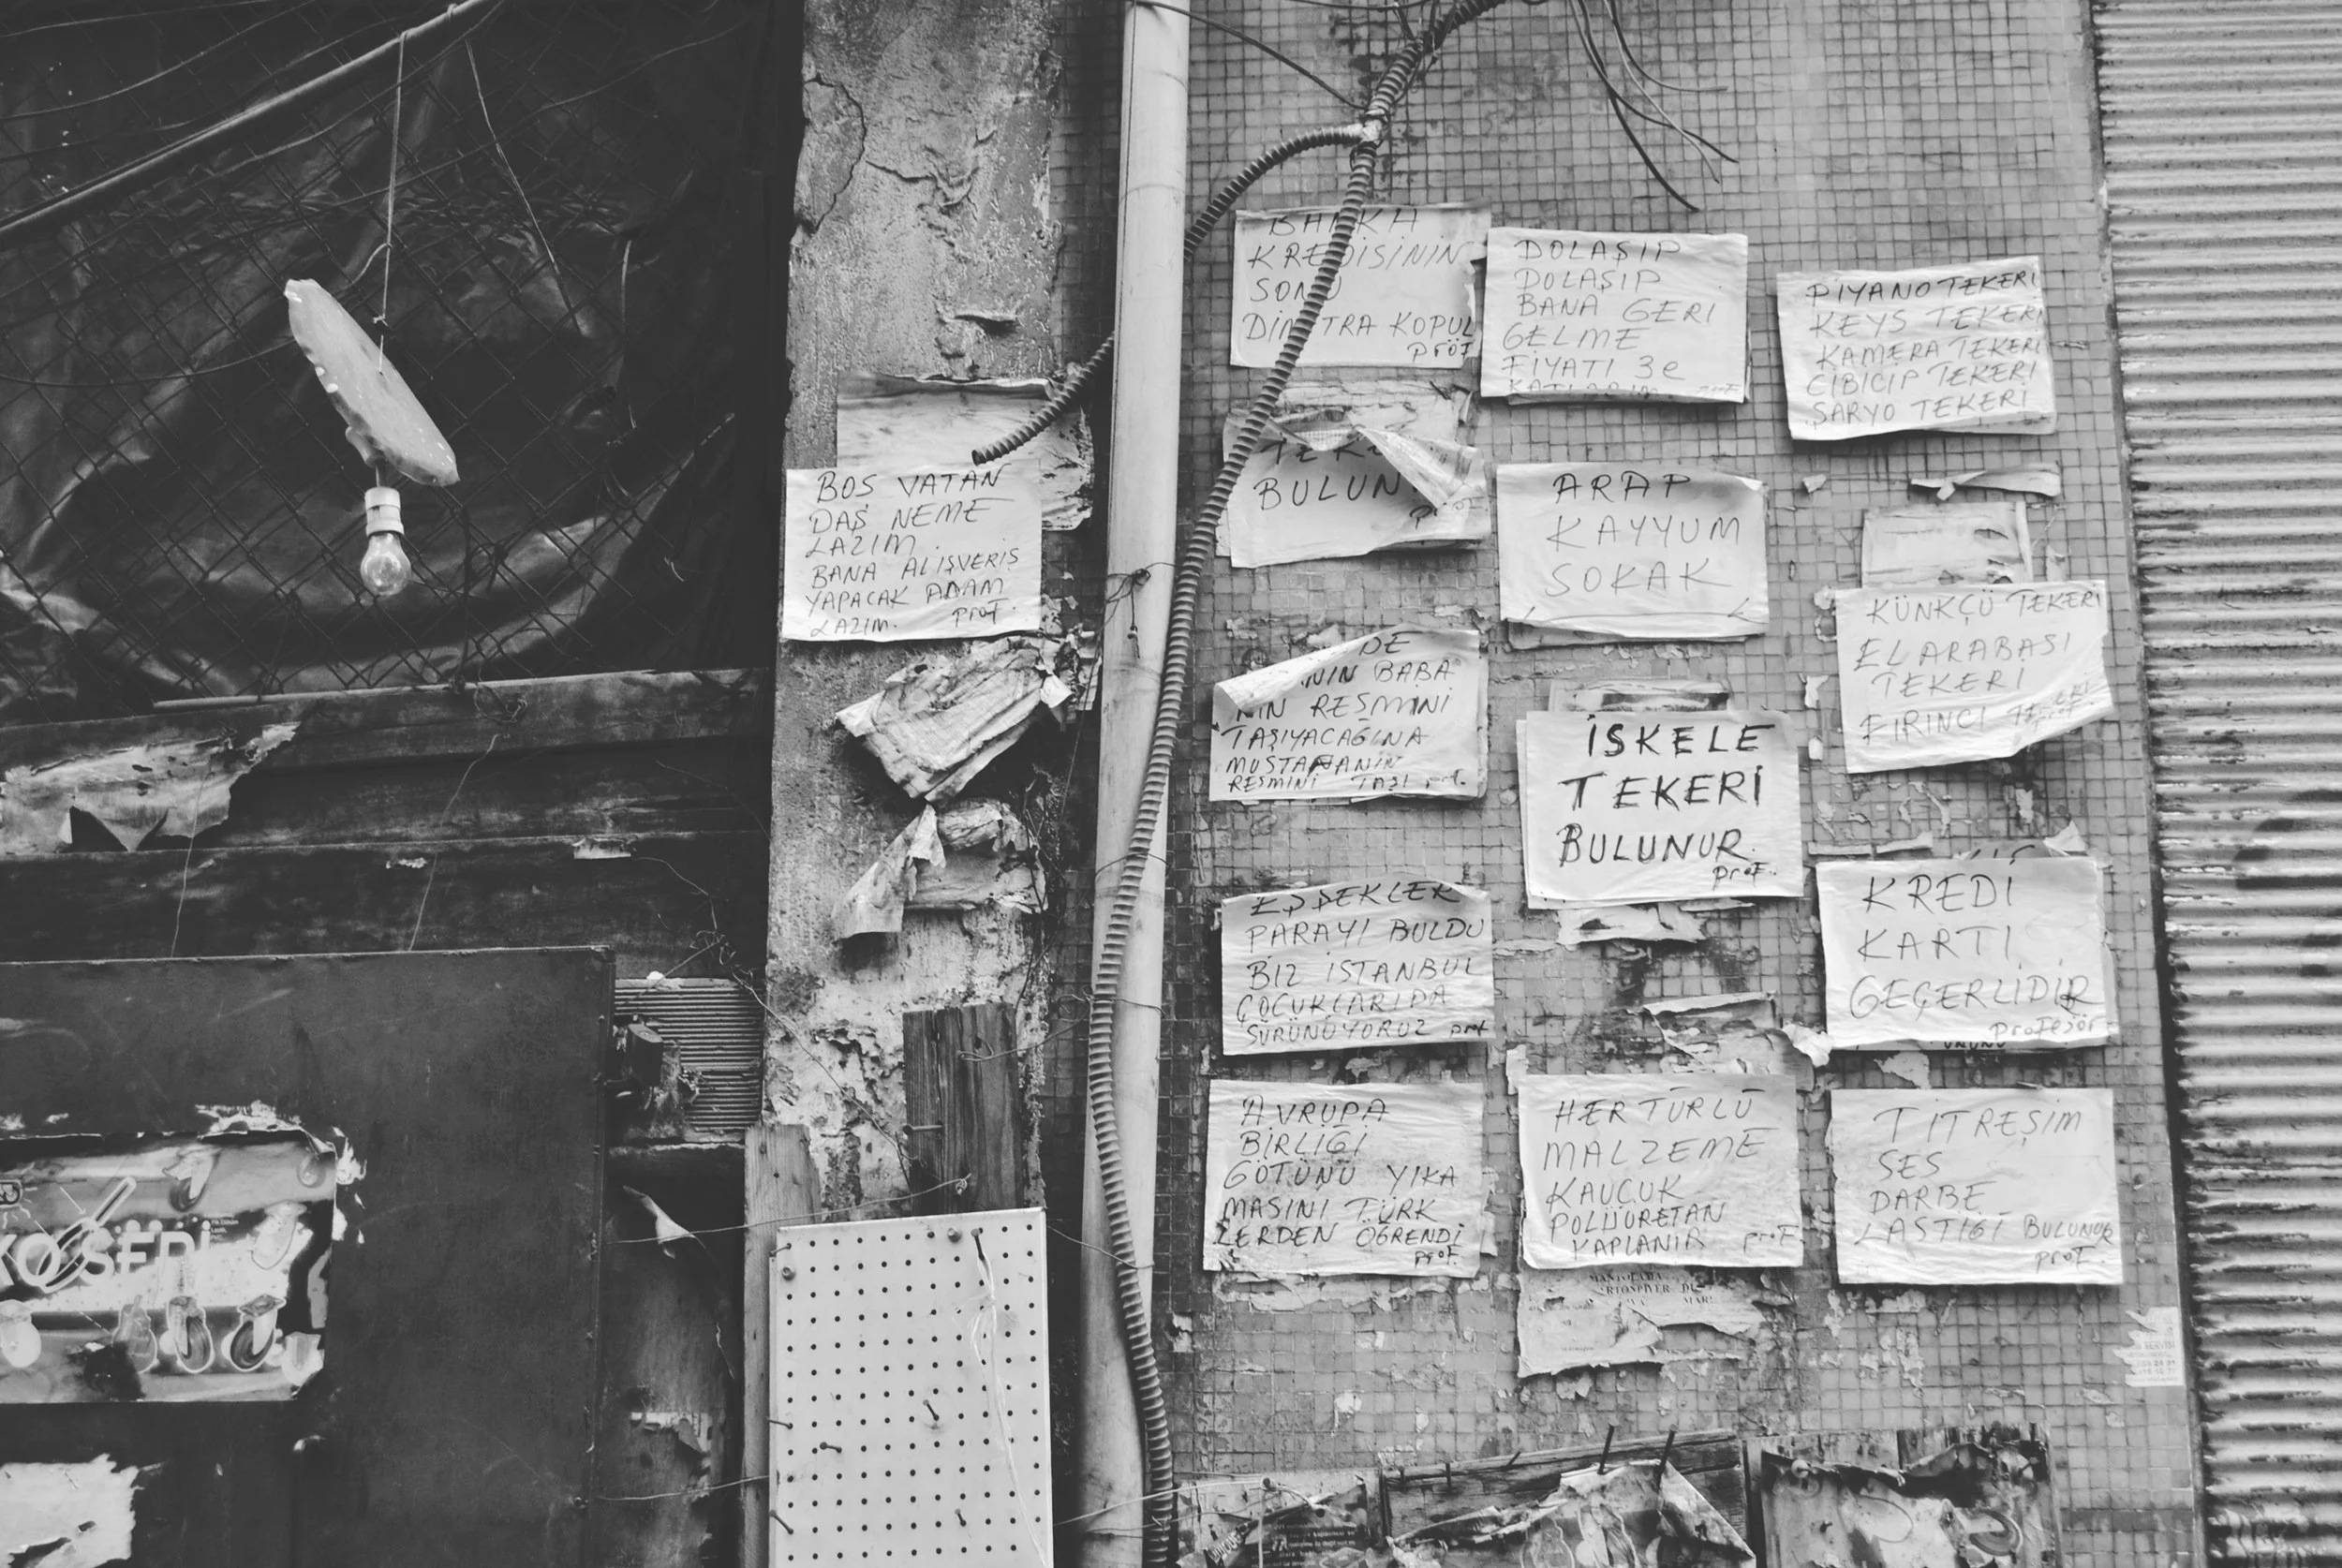 BOŞ VATAN
DAŞ NEME
LAZIM.
BANA ALIŞVERİŞ
YAPACAK ADAM
LAZIM. prof.
BANKA
KREDİSİNİN
SONU
KOPUL
prof
DOLAŞIP
DOLAŞIP
BANA GERİ
GELME
FİYATI 3e
KATLARIM prof.
PİYANO TEKERİ
KEYS TEKERİ
KAMERA TEKERİ
CİBİCİP TEKERİ
ŞARYO TEKERİ
BULUN
prof
ARAP
KAYYUM
SOKAK
KÜNKÇÜ TEKERİ
EL ARABASI
TEKERİ
FIRINCI
prof.
DE
NIN BABA
NIN RESMİNİ
TAŞIYACAĞINA
MUSTAFANIN
RESMİNİ TAŞI prf.
İSKELE
TEKERİ
BULUNUR.
prof.
KREDİ
KARTI
GEÇERLİDİR
profesör.
EŞŞEKLER
PARAYI BULDU
BİZ İSTANBUL
ÇOCUKLARIDA
SÜRÜNÜYORUZ prf
AVRUPA
BİRLİĞİ
GÖTÜNÜ YIKA
MASINI TÜRK
LERDEN ÖĞRENDİ
prof.
HER TÜRLÜ
MALZEME
KAUÇUK
POLİÜRETAN
KAPLANIR prof.
TİTREŞİM
SES
DARBE
LASTİĞİ BULUNUR
prof.